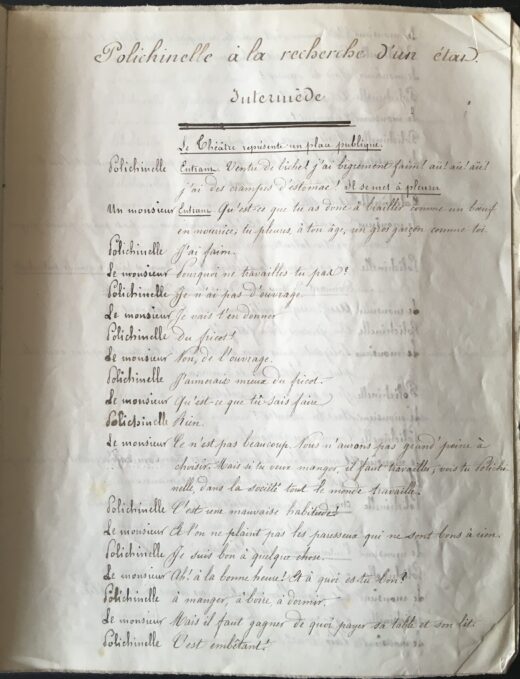 Polichinelle à la recherche d'un état.
Intermède
Le Théâtre représente un place publique.
Polichinelle Entrant. Ventre de biche! j'ai bigrement faim! aïe! aïe! aïe!
j'ai des crampes d'estomac! Il se met à pleurer
Un monsieur Entrant. Qu'est-ce que tu as donc à brailler comme un bœuf
en nourrice, tu pleures, à ton âge, un gros garçon comme toi
Polichinelle J'ai faim.
Le monsieur Pourquoi ne travailles-tu pas?
Polichinelle Je n'ai pas d'ouvrage
Le monsieur Je vais t'en donner
Polichinelle Du fricot!
Le monsieur Non, de l'ouvrage.
Polichinelle J'aimerais mieux du fricot.
Le monsieur Qu'est-ce que tu sais faire
Polichinelle Rien.
Le monsieur Ce n'est pas beaucoup. Nous n'aurons pas grand' peine à
choisir. Mais si tu veux manger, il faut travailler, vois-tu Polichi-
nelle, dans la société tout le monde travaille.
Polichinelle C'est une mauvaise habitude!
Le monsieur Et l'on ne plaint pas les paresseux qui ne sont bons à rien.
Polichinelle Je suis bon à quelque chose.
Le monsieur Ah! à la bonne heure! Et à quoi es-tu bon?
Polichinelle à manger, à boire, à dormir.
Le monsieur Mais il faut gagner de quoi payer sa table et son lit.
Polichinelle C'est embêtant!